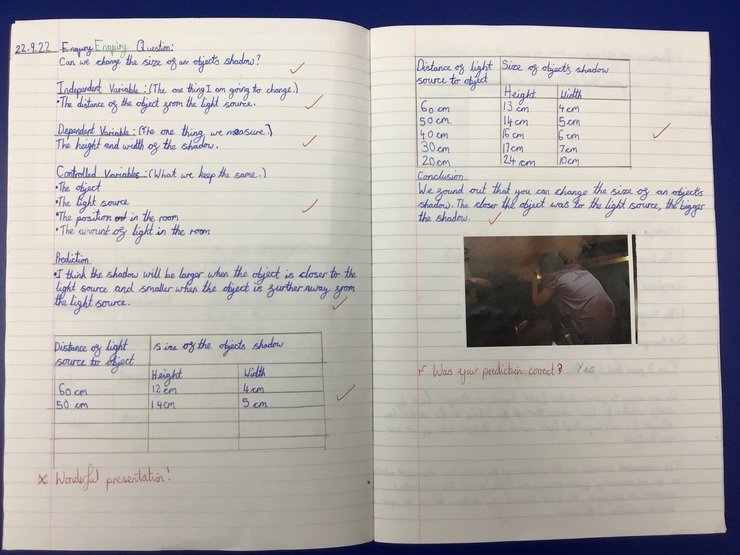 22.9.22 Enquiry Enquiry Question:
Can we change the size of an objects shadow?
Independent Variable: (The one thing I am going to change.)
•The distance of the object from the light source.
Dependent Variable: (The one thing we measure.)
The height and width of the shadow.
Controlled Variables: (What we keep the same.)
•The object
•The light source
•The position in the room
•The amount of light in the room
Prediction
•I think the shadow will be larger when the object is closer to the
light source and smaller when the object is further away from
the light source.
Distance of light Size of the objects shadow
source to object
Height Width
60 cm 12 cm 4 cm
50 cm 14 cm 5 cm
Wonderful presentation!
Distance of light Size of objects shadow
source to object
Height Width
60 cm 13 cm 4 cm
50 cm 14 cm 5 cm
40 cm 16 cm 6 cm
30 cm 17 cm 7 cm
20 cm 24 cm 10 cm
Conclusion
We found out that you can change the size of an objects
shadow. The closer the object was to the light source, the bigger
the shadow.
Was your prediction correct? Yes